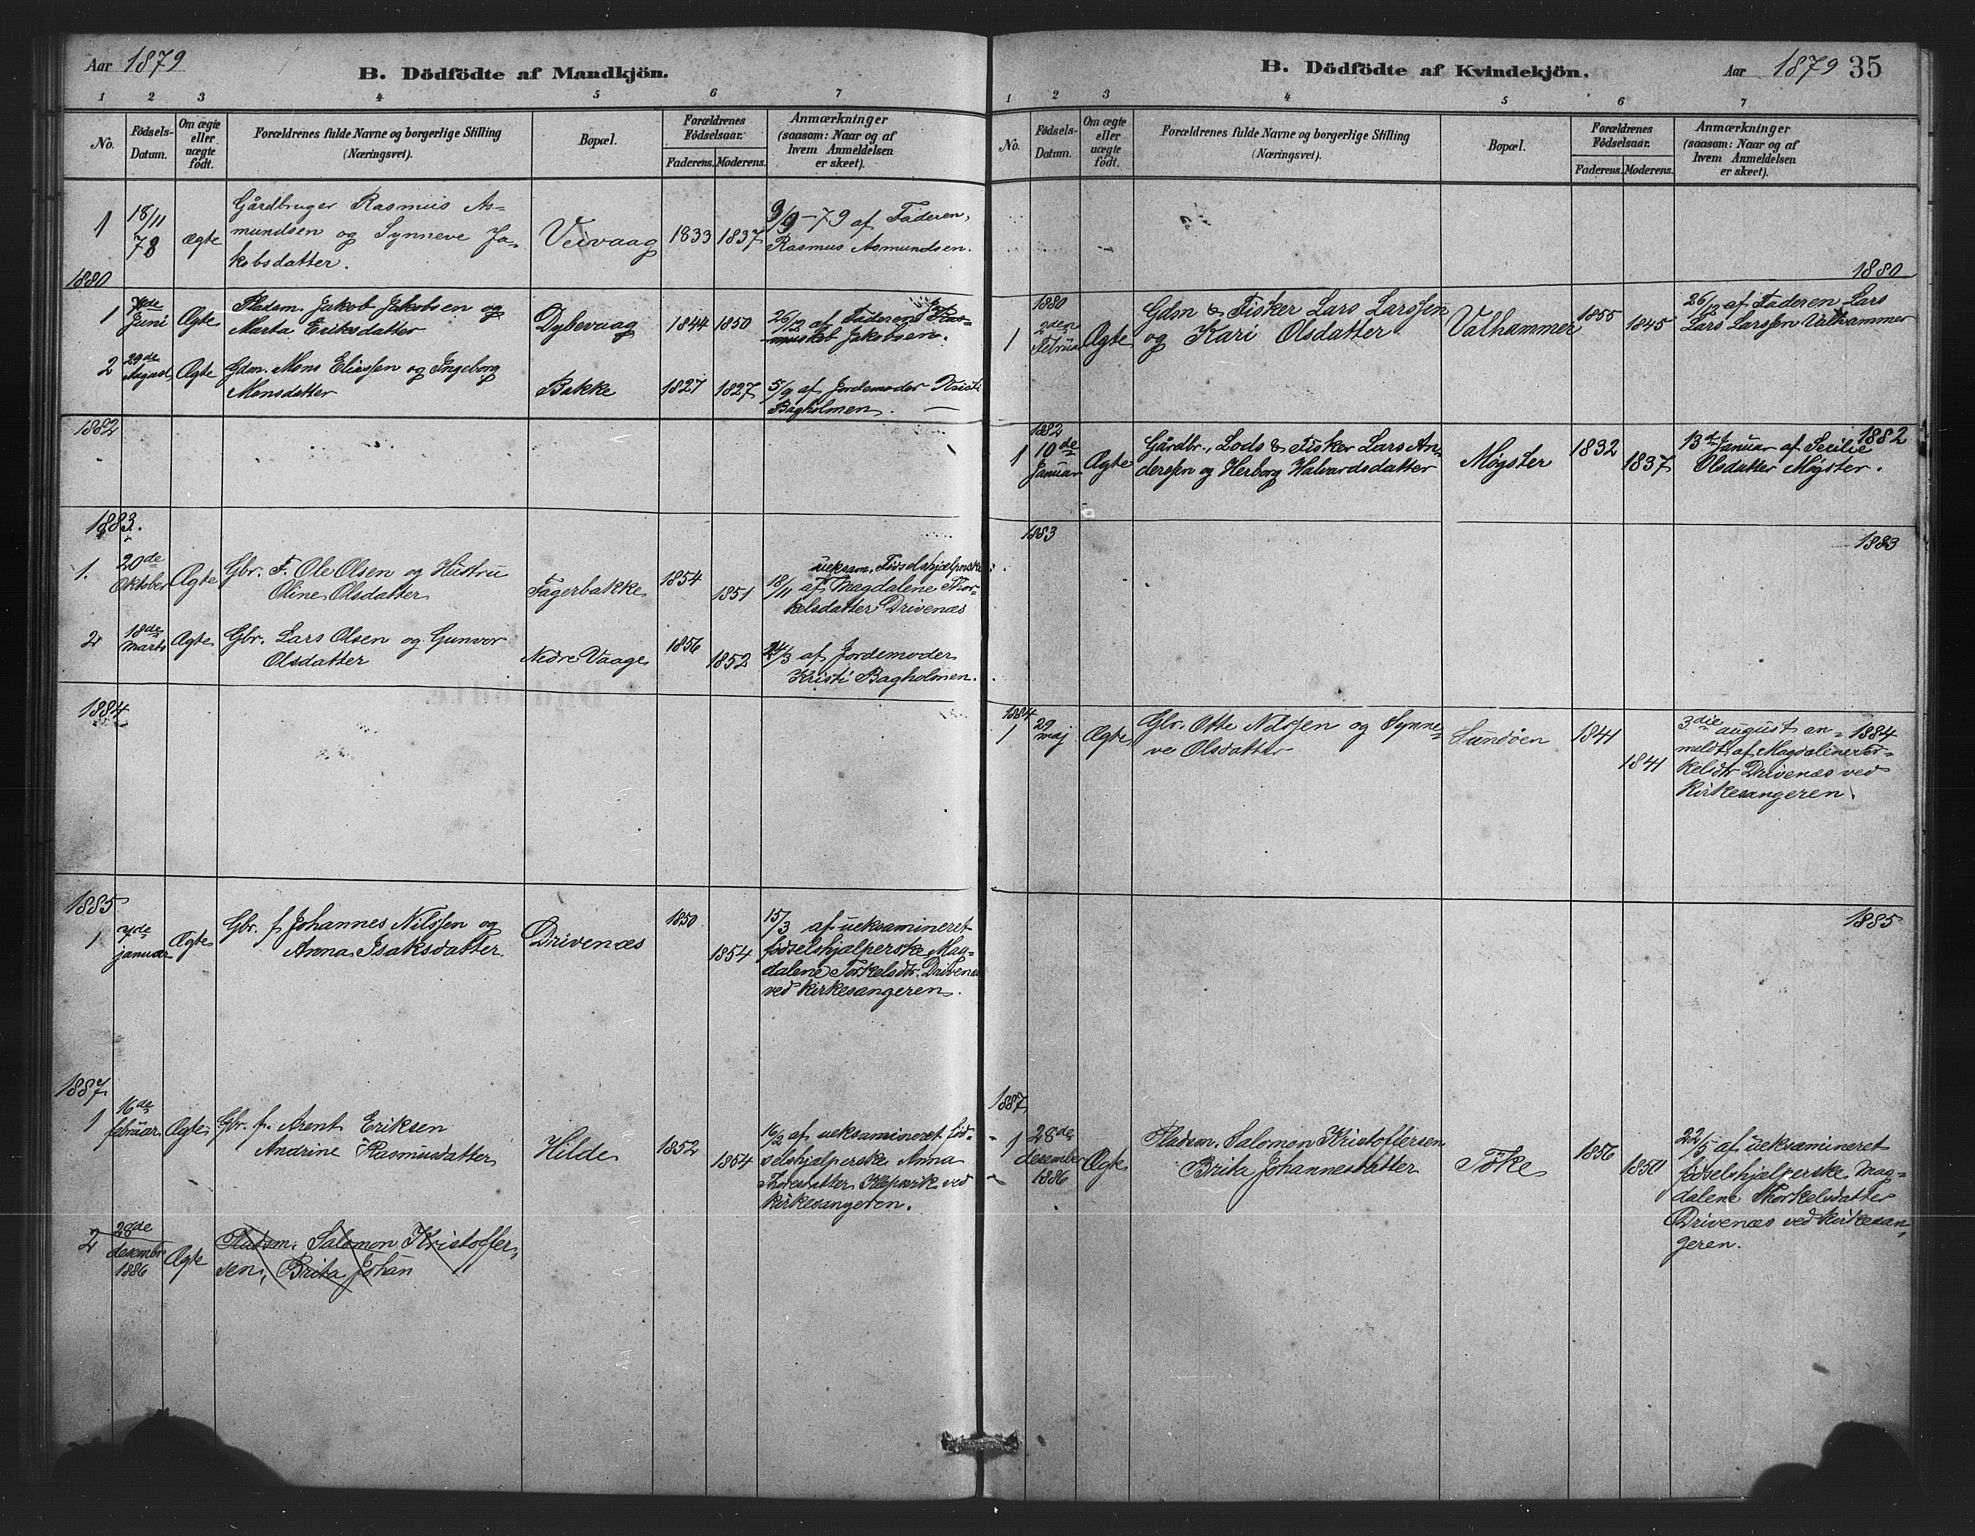 Aar 1879
B. Dödfödte af Mandkjön.
1 2 3 4 5 6 7
No.
Födsels-
Datum.
Om ægte
eller
uægte
födt.
Forældrenes fulde Navne og borgerlige Stilling
(Næringsvei).
Bopæl.
Forældrenes
Födselsaar.
Faderens. Moderens.
Anmærkninger
(saasom: Naar og af
hvem Anmeldelsen
er skeet).
1 18/11 78 ægte Gårdbruger Rasmus As-
mundsen og Synneve Ja-
kobsdatter.
Veivaag 1833 1837
9/9-79 af Faderen,
Rasmus Asmundsen.
1880
1 7de Juni Ægte Pladsm. Jakob Jakobsen og
Marta Eriksdatter
Dybevaag 1844 1850
26/12 af Faderen Jakob Jakobsen.
2 29de August Ægte Gdm. Mons Eliassen og Ingeborg
Monsdatter
Bakke 1827 1827
5/9 af Jordemoder Kristi
Bagholmen.
1882
1883.
1. 20de Oktober Ægte Gbr. F. Ole Olsen og Hustru
Oline Olsdatter
Fagerbakke 1854 1851
ueksam. Fødselshjælperske
18/11 af Magdalene Thor-
kelsdatter Drivenæs
2 18de Marts Ægte Gbr. Lars Olsen og Gunvor
Olsdatter
Nedre Vaage 1856 1852
24/3 af Jordemoder
Kristi Bagholmen.
1884
1885
1 7de januar Ægte Gbr. f Johannes Nilssen og
Anna Isaksdatter
Drivenæs 1850 1854
15/3 af ueksamineret
fødselshjælperske Mag-
dalene Torkelsdtr. Drivenæs
ved kirkesangeren.
1887
1 16de februar Ægte Gbr. f. Arent Eriksen
Andrine Rasmusdatter
Hilde 1852 1854
16/2 af ueksamineret fød-
selshjælperske Anna
Thoresdatter Klepsvik ved
kirkesangeren.
2 28de desembr 1886 Ægte Pladsm. Salomon Kristoffer-
sen, Brita Johan
B. Dödfödte af Kvindekjön.
Aar 1879 35
1 2 3 4 5 6 7
No.
Födsels-
Datum.
Om ægte
eller
uægte
födt.
Forældrenes fulde Navne og borgerlige Stilling
(Næringsvei).
Bopæl.
Forældrenes
Födselsaar.
Faderens. Moderens.
Anmærkninger
(saasom: Naar og af
hvem Anmeldelsen
er skeet).
1880
1880
1 2den Februar Ægte Gdm & Fisker Lars Larssen
og Kari Olsdatter
Valhammer 1855 1845
26/12 af Faderen Lars
Lars Larssen Valhammer
1882
1882
1 10de Januar Ægte Gårdbr., Lods & Fisker Lars An-
derssen og Herborg Halvardsdatter
Møgster 1832 1837
13de Januar af Secilie
Olsdatter Møgster.
1883
1883
1884
1884
1 29 maj Ægte Gbr. Otte Nilssen og Synne-
ve Olsdatter
Sundøen 1841 1841
3die august an-
meldt af Magdaline Tor-
kelsdtr Drivenæs ved
kirkesangeren.
1885
1887
1 28de desember 1886 Ægte Pladsm. Salomon Kristoffersen
Brita Johannesdatter
Tøke 1856 1850
22/5 af ueksamineret
fødselshjælperske Mag-
dalene Thorkelsdatter
Drivenæs ved kirkesan-
geren.